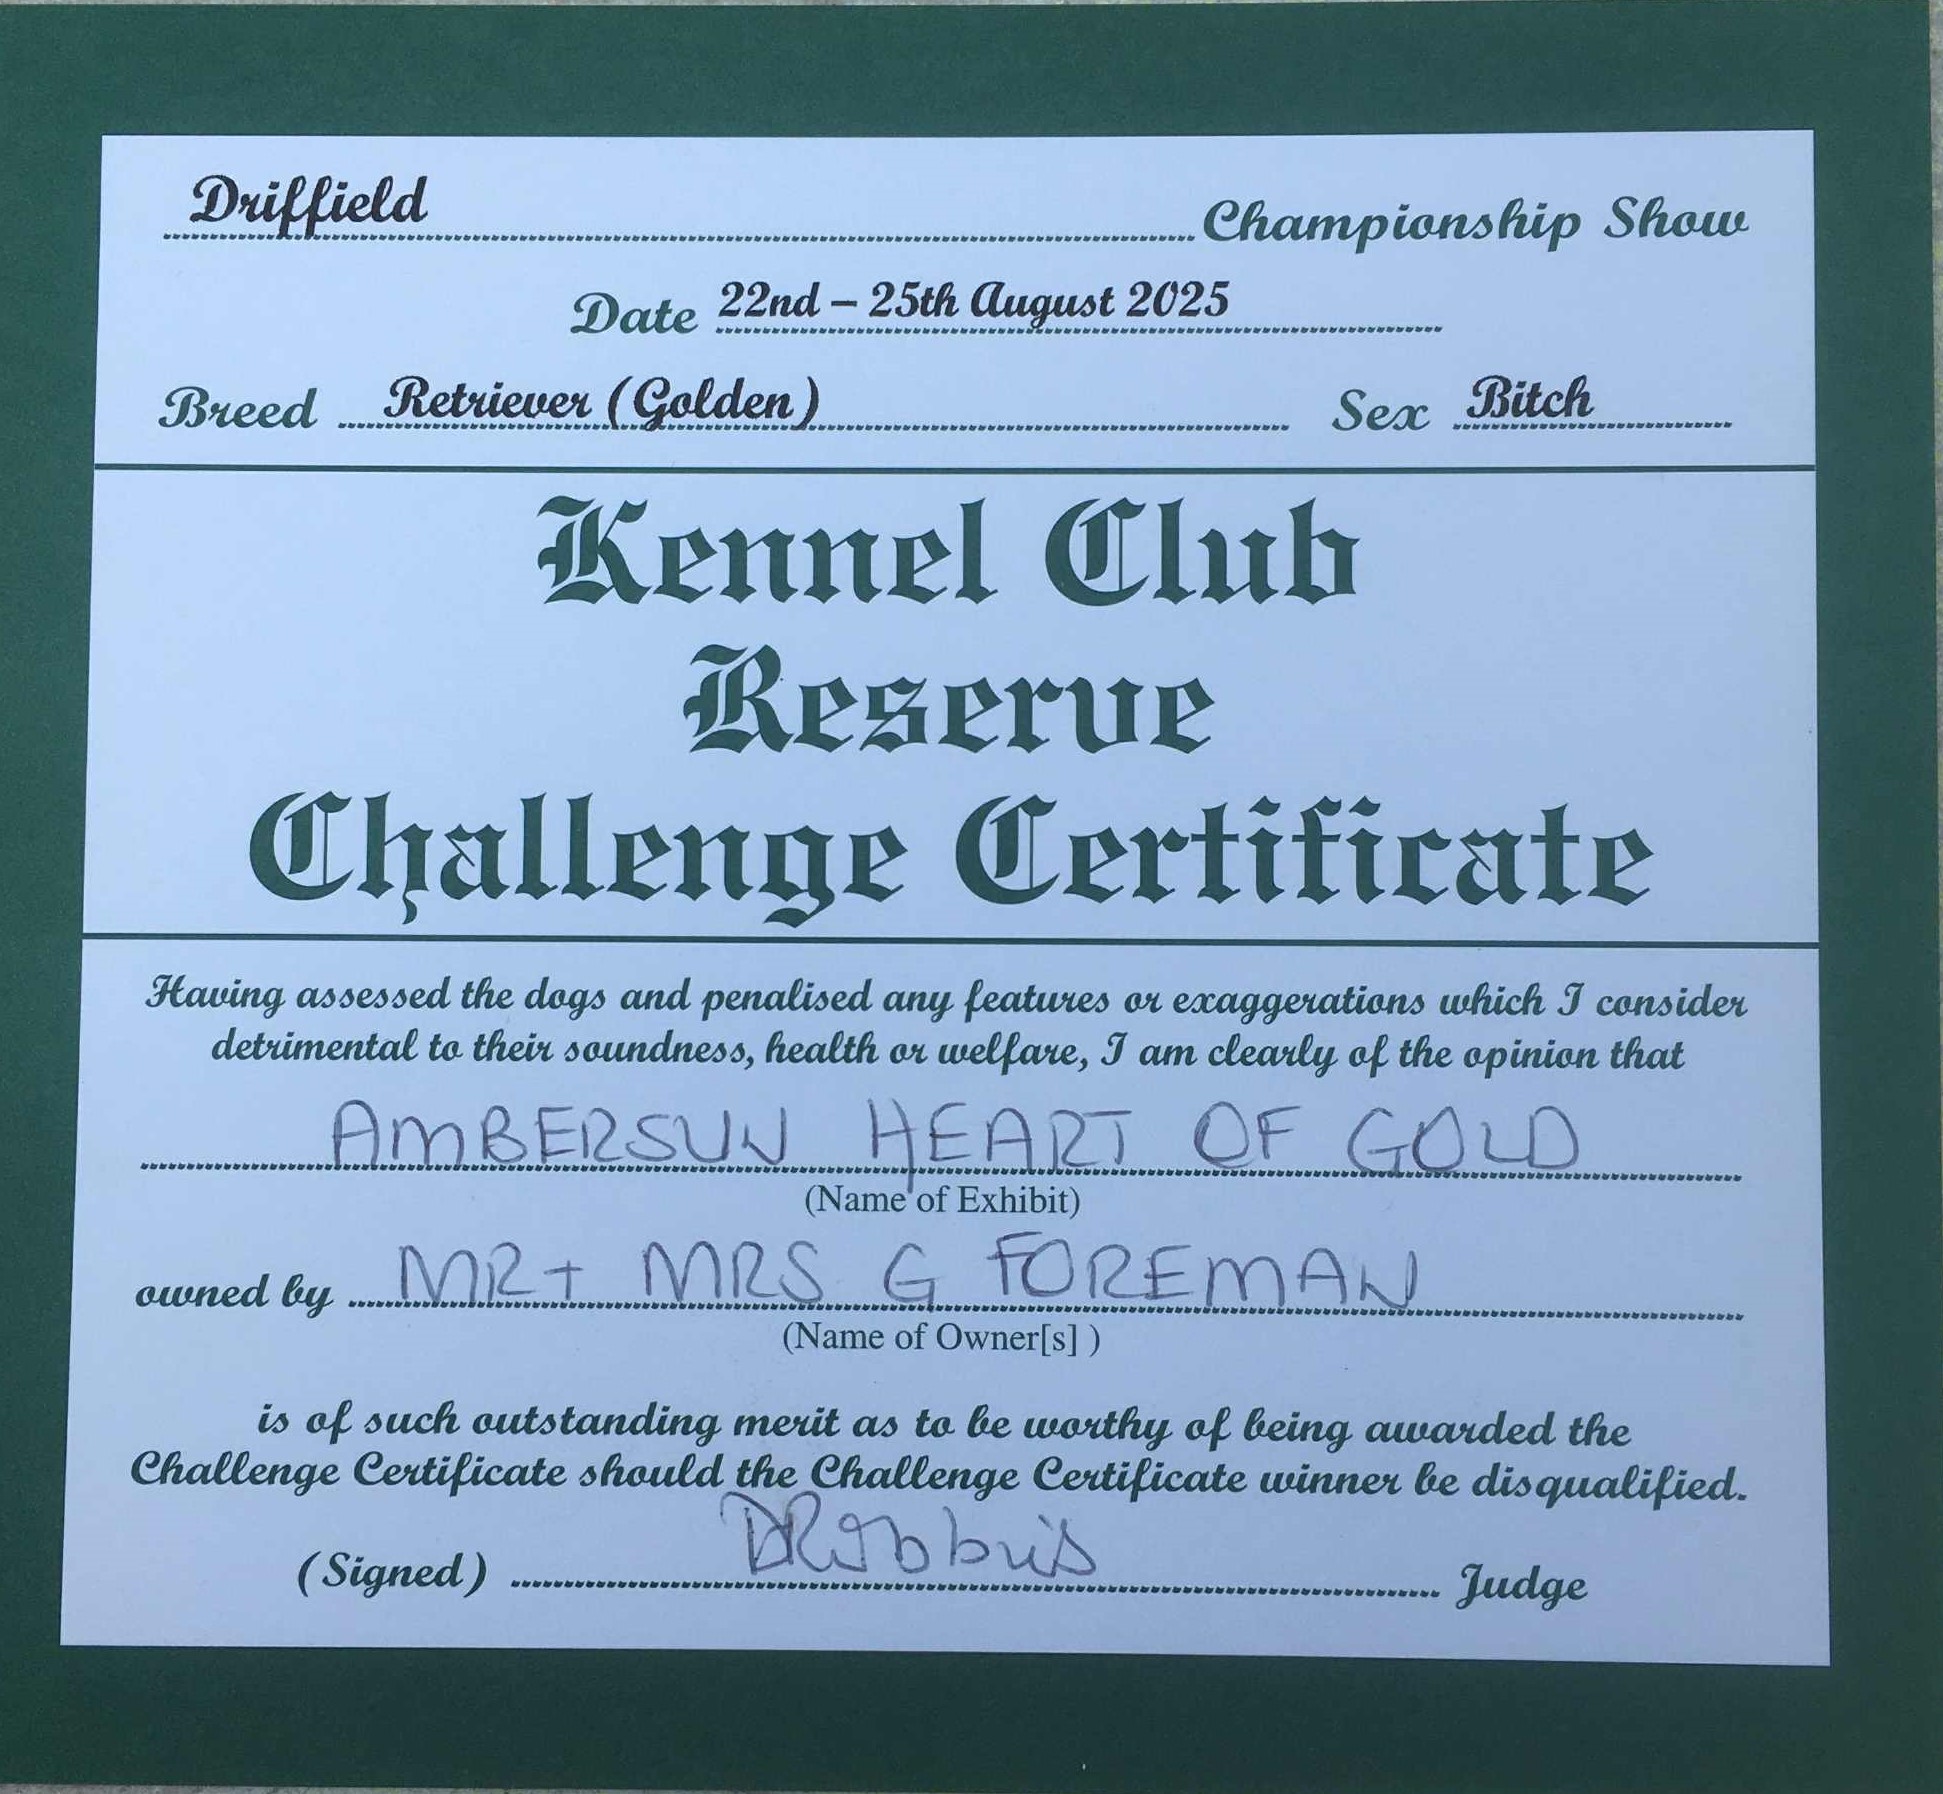 Driffield Championship Show
Date 22nd – 25th August 2025
Breed Retriever (Golden) Sex Bitch
Kennel Club
Reserve
Challenge Certificate
Having assessed the dogs and penalised any features or exaggerations which I consider
detrimental to their soundness, health or welfare, I am clearly of the opinion that
AMBERSUN HEART OF GOLD
(Name of Exhibit)
owned by MR + MRS G FOREMAN
(Name of Owner[s] )
is of such outstanding merit as to be worthy of being awarded the
Challenge Certificate should the Challenge Certificate winner be disqualified.
(Signed) Judge